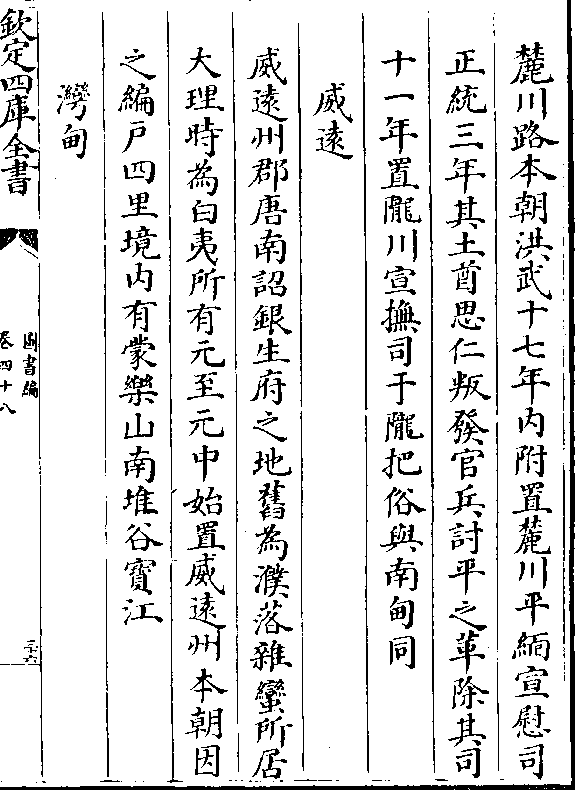 麓川路本朝洪武十七年内附置麓川平緬宣慰司
正統三年其土酋思仁叛發官兵討平之革除其司
十一年置隴川宣撫司于隴把俗與南甸同
威遠
威遠州郡唐南詔銀生府之地舊為濮落雜蠻所居
大理時為白夷所有元至元中始置威遠州本朝因
之編戸四里境内有蒙樂山南堆谷寳江
灣甸
欽定四庫全書
圖書編
卷四十八
三十六